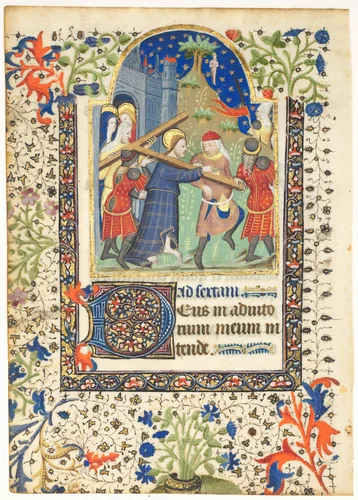 Ad sextam
Deus in adiuto
rium meum in
tende.